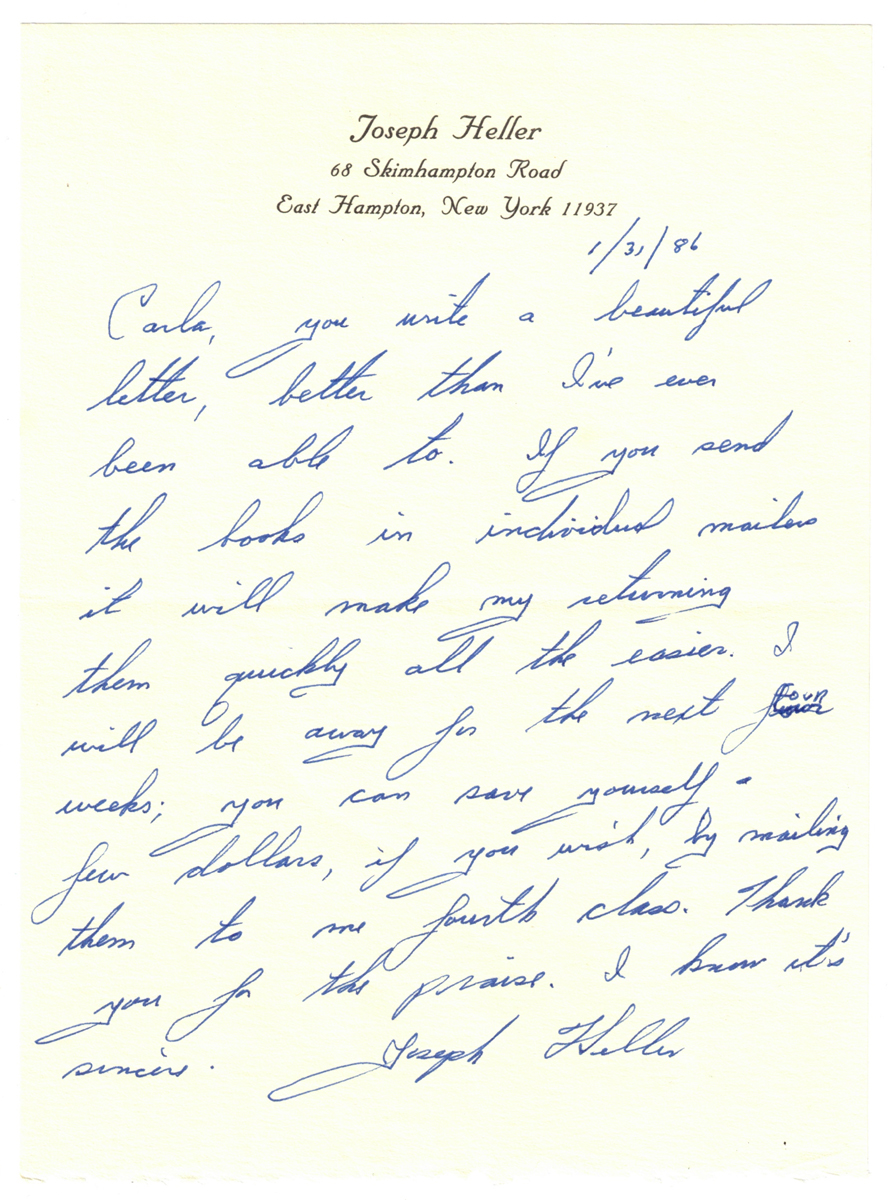 Joseph Heller
68 Skimhampton Road
East Hampton, New York 11937
1/31/86
Carla, you write a beautiful
letter, better than I've ever
been able to. If you send
the books in individual mailers
it will make my returning
them quickly all the easier. I
will be away for the next four
weeks; you can save yourself a
few dollars, if you wish, by mailing
them to me fourth class. Thank
you for the praise. I know it's
sincere. Joseph Heller